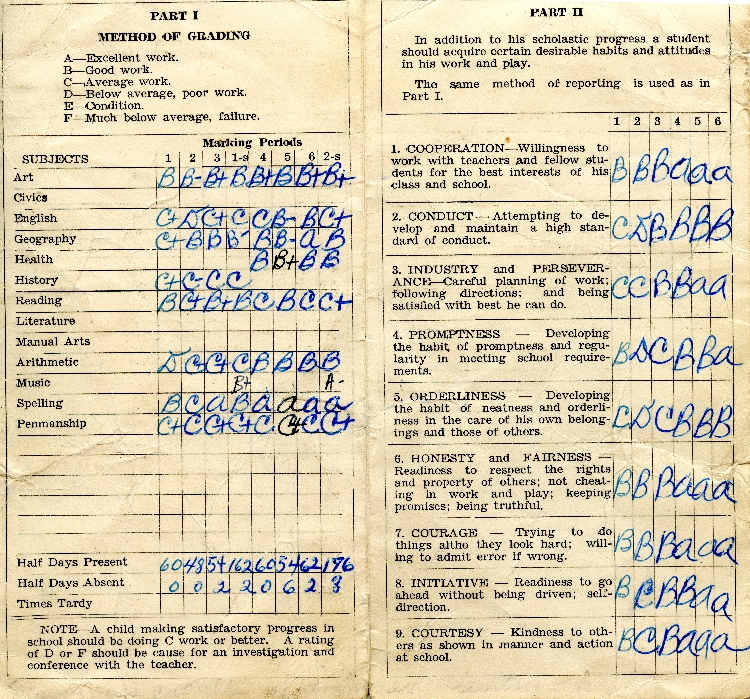 PART I
METHOD OF GRADING
A—Excellent work.
B—Good work.
C—Average work.
D—Below average, poor work.
E—Condition.
F—Much below average, failure.
Marking Periods
SUBJECTS 1 2 3 1-s 4 5 6 2-s
Art B B- B+ B B+ B B+ B+
Civics
English C+ D C+ C C B- B C+
Geography C+ B B B- B B- a B
Health B B+ B B
History C+ C- C C
Reading B C+ B+ B C B C C+
Literature
Manual Arts
Arithmetic D C C+ C B B B B
Music B+ A-
Spelling B C a B a a a a
Penmanship C+ C C+ C+ C C+ C C+
Half Days Present 60 48 54 162 60 54 62 176
Half Days Absent 0 0 2 2 0 6 2 8
Times Tardy
NOTE—A child making satisfactory progress in
school should be doing C work or better. A rating
of D or F should be cause for an investigation and
conference with the teacher.
PART II
In addition to his scholastic progress a student
should acquire certain desirable habits and attitudes
in his work and play.
The same method of reporting is used as in
Part I.
1 2 3 4 5 6
1. COOPERATION—Willingness to
work with teachers and fellow stu-
dents for the best interests of his
class and school.
B B B a a a
2. CONDUCT—Attempting to de-
velop and maintain a high stan-
dard of conduct.
C D B B B B
3. INDUSTRY and PERSEVER-
ANCE—Careful planning of work;
following directions; and being
satisfied with best he can do.
C C B B a a
4. PROMPTNESS — Developing
the habit of promptness and regu-
larity in meeting school require-
ments.
B D C B B a
5. ORDERLINESS — Developing
the habit of neatness and orderli-
ness in the care of his own belong-
ings and those of others.
C D C B B B
6. HONESTY and FAIRNESS —
Readiness to respect the rights
and property of others; not cheat-
ing in work and play; keeping
promises; being truthful.
B B B a a a
7. COURAGE — Trying to do
things altho they look hard; will-
ing to admit error if wrong.
B B B a a a
8. INITIATIVE — Readiness to go
ahead without being driven; self-
direction.
B C B B a a
9. COURTESY — Kindness to oth-
ers as shown in manner and action
at school.
B C B a a a